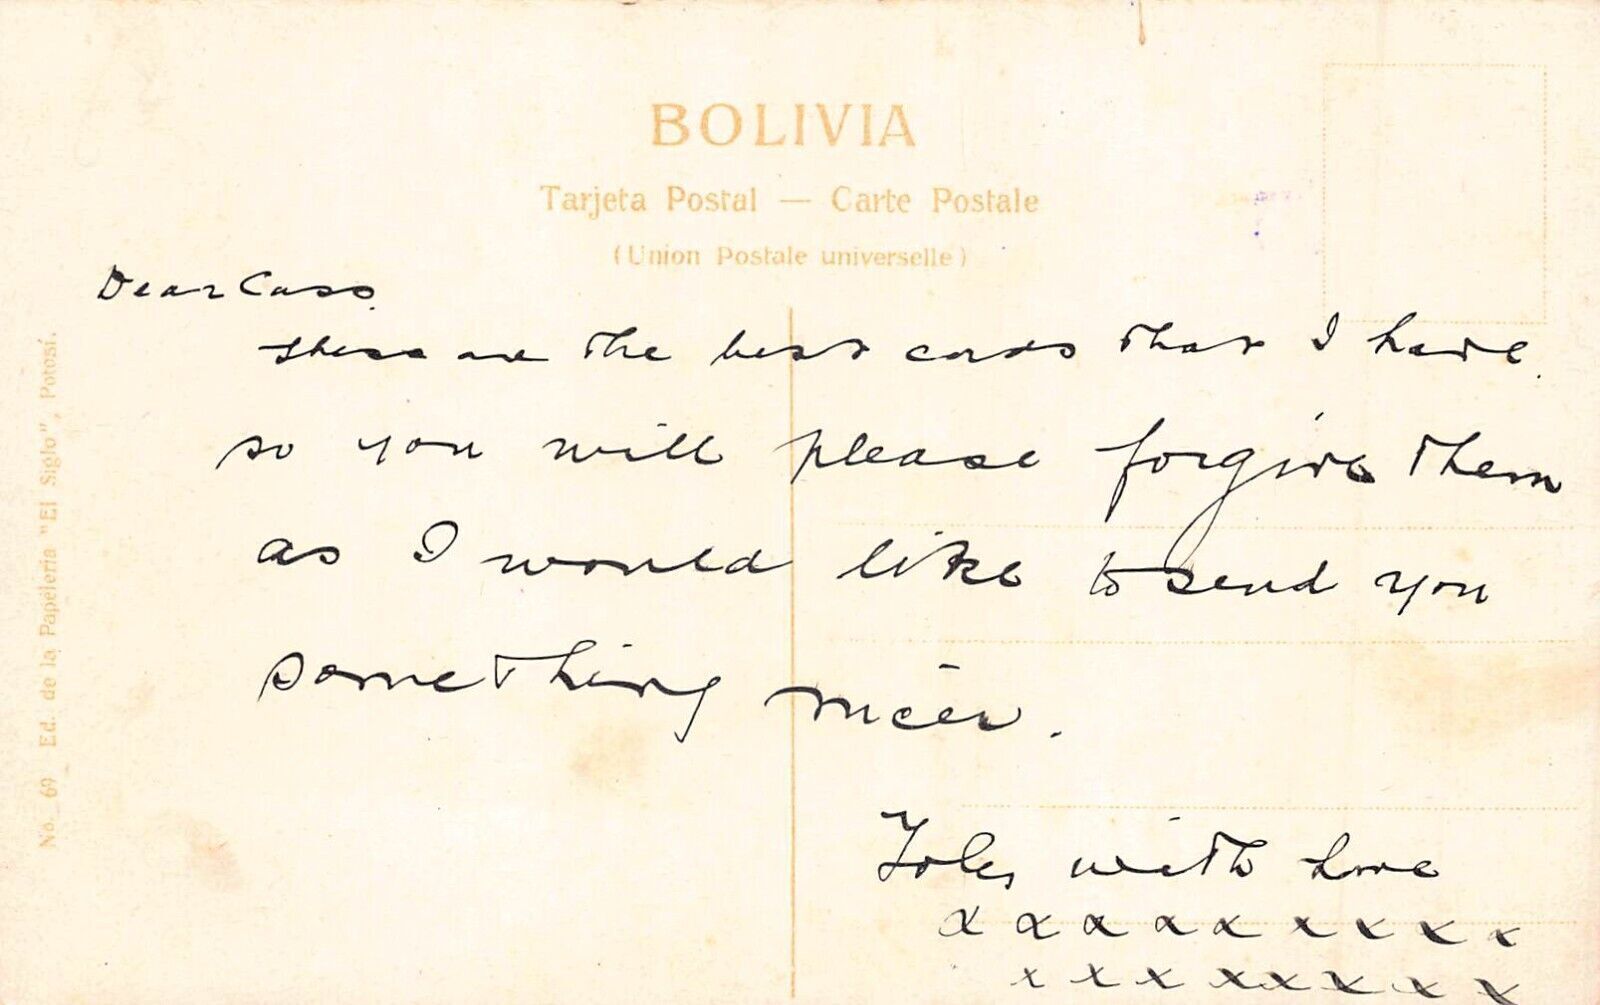 BOLIVIA
Tarjeta Postal — Carte Postale
(Union Postale universelle)
No. 69 Ed. de la Papelería "El Siglo", Potosí.
Dear Cass.
These are the best cards that I have.
so you will please forgive them
as I would like to send you
something nicer.
with love
x x x x x x x x x
x x x x x x x x